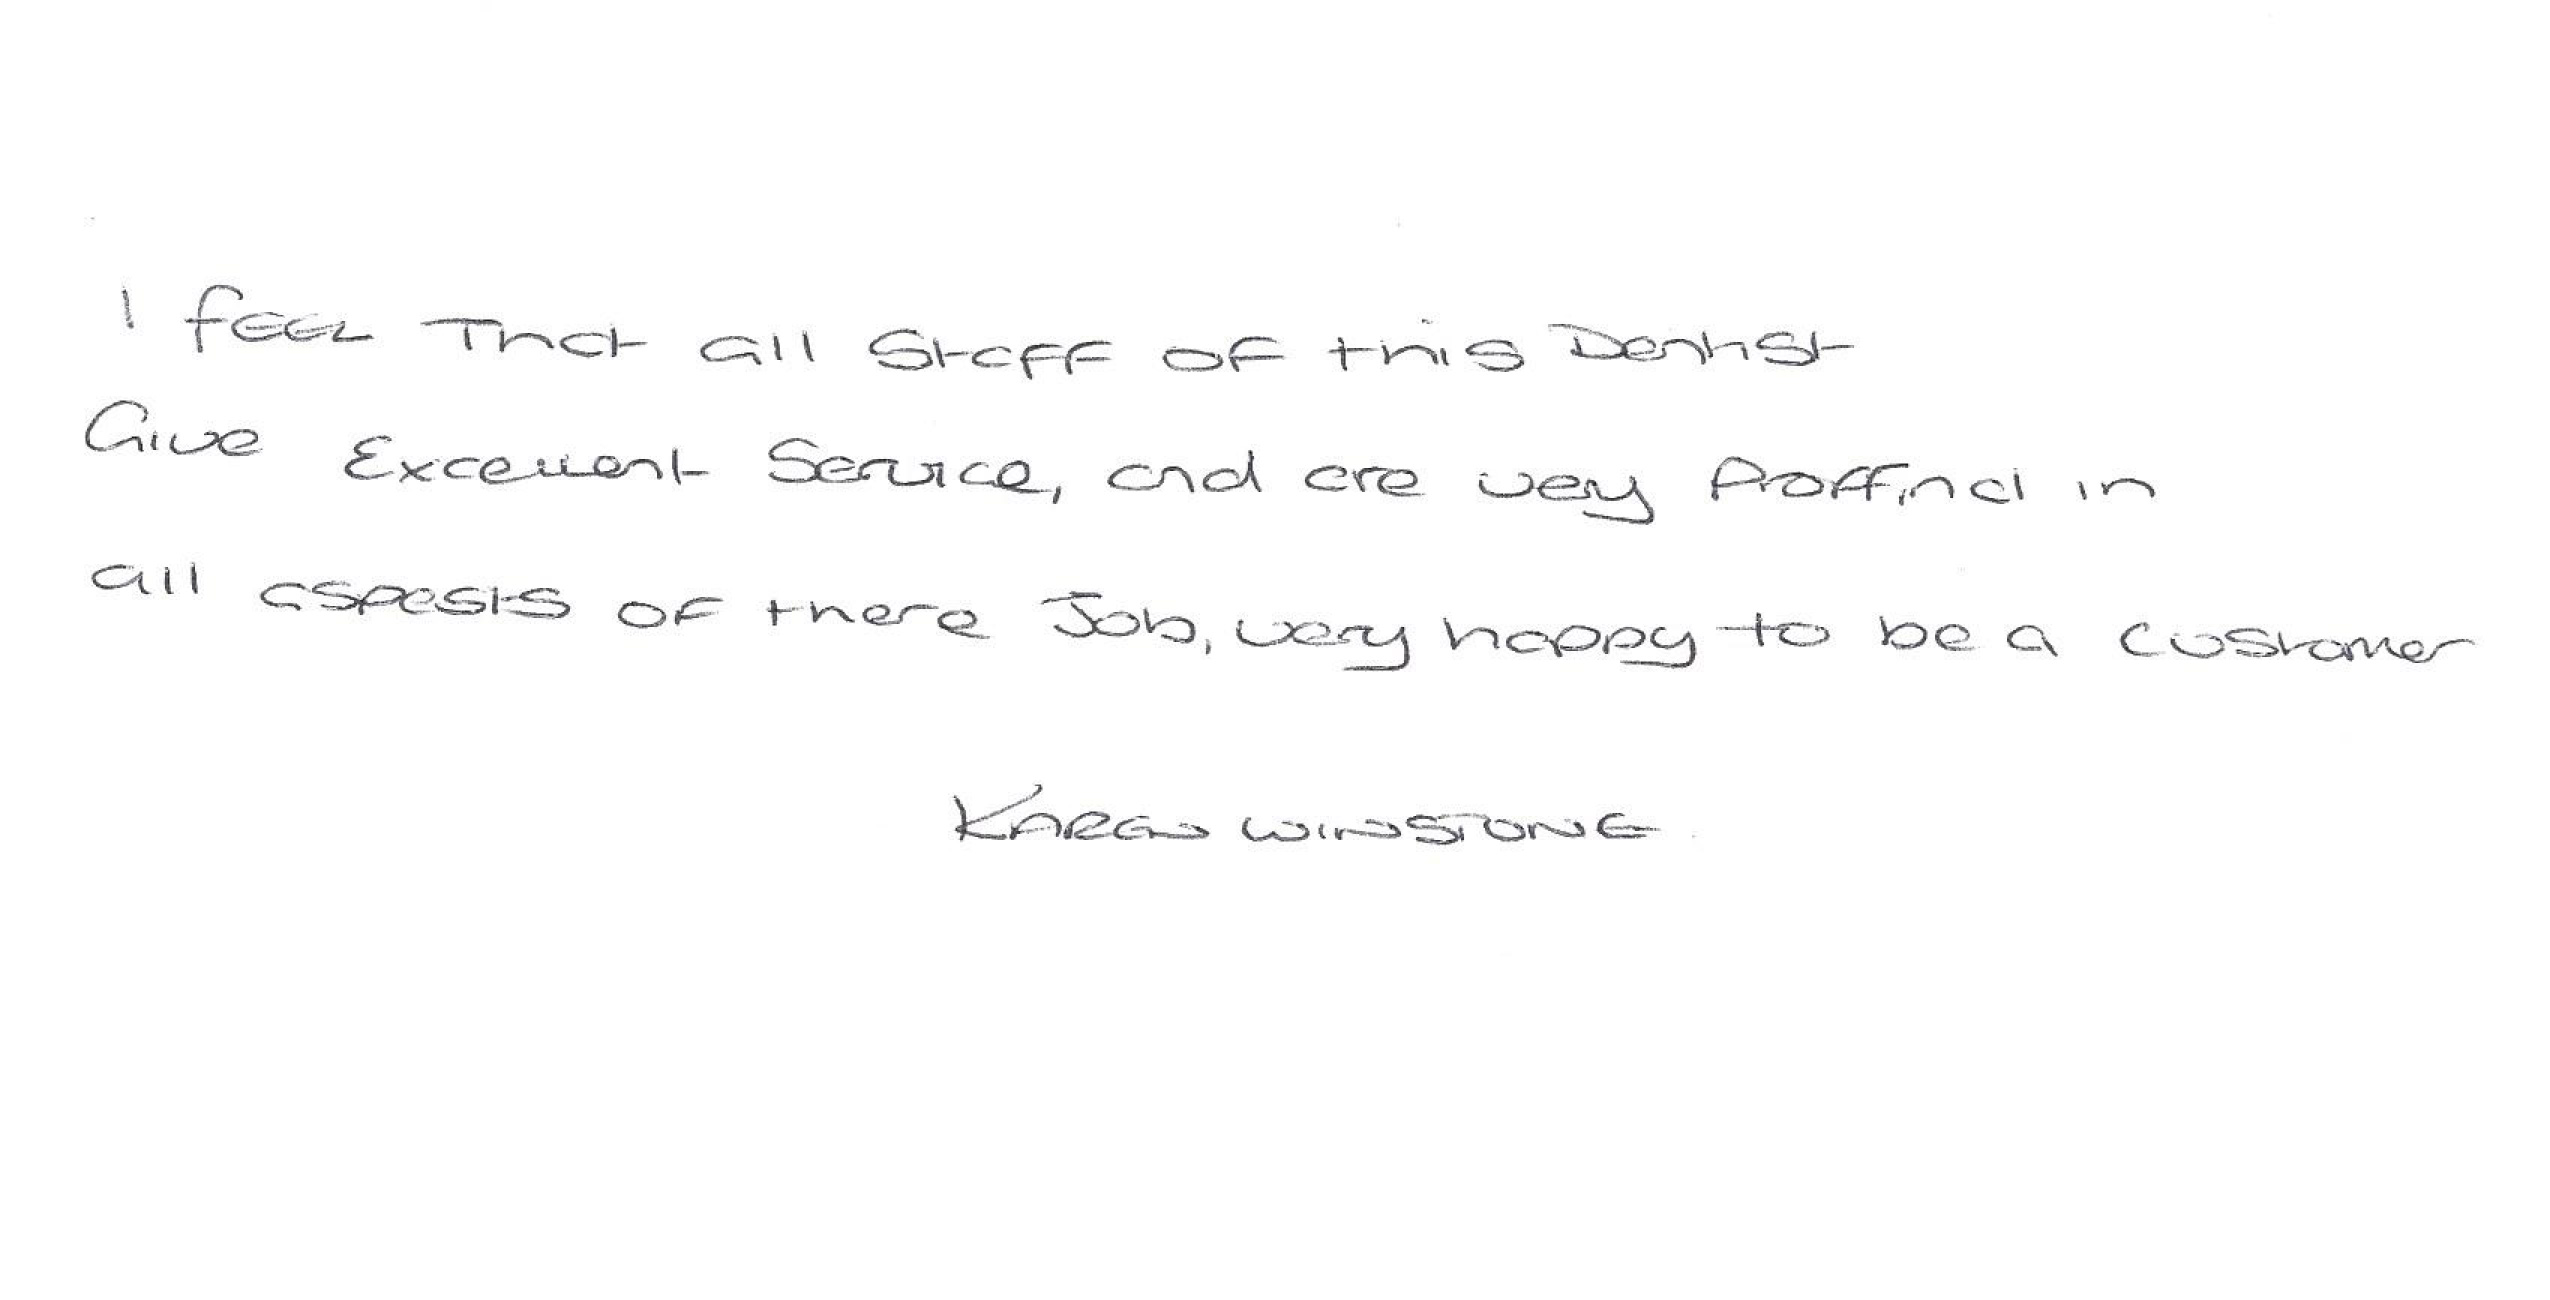 I feel That all Staff of this Dentist
Give Excellent Service, and are very Proffinal in
all aspests of there Job, very happy to be a customer
KAREN WINSTONE